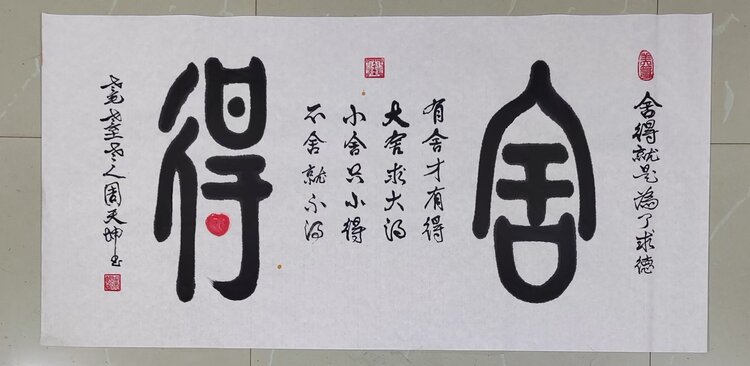 舍得就是為了求德
舍
有舍才有得
大舍求大得
小舍只小得
不舍就不得
得
周天坤书